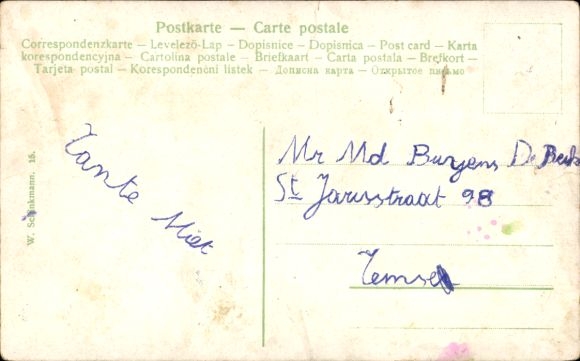 Postkarte — Carte postale
Correspondenzkarte – Levelező-Lap – Dopisnice – Dopisnica – Post card – Karta
korespondencyjna – Cartolina postale – Briefkaart – Carta postala – Brefkort –
Tarjeta postal – Korespondenční lístek – Дописна карта – Открытое письмо
W. Schinkmann. 15.
Tante Miet
Mr Md Buryens De
St Jorisstraat 98
Temse